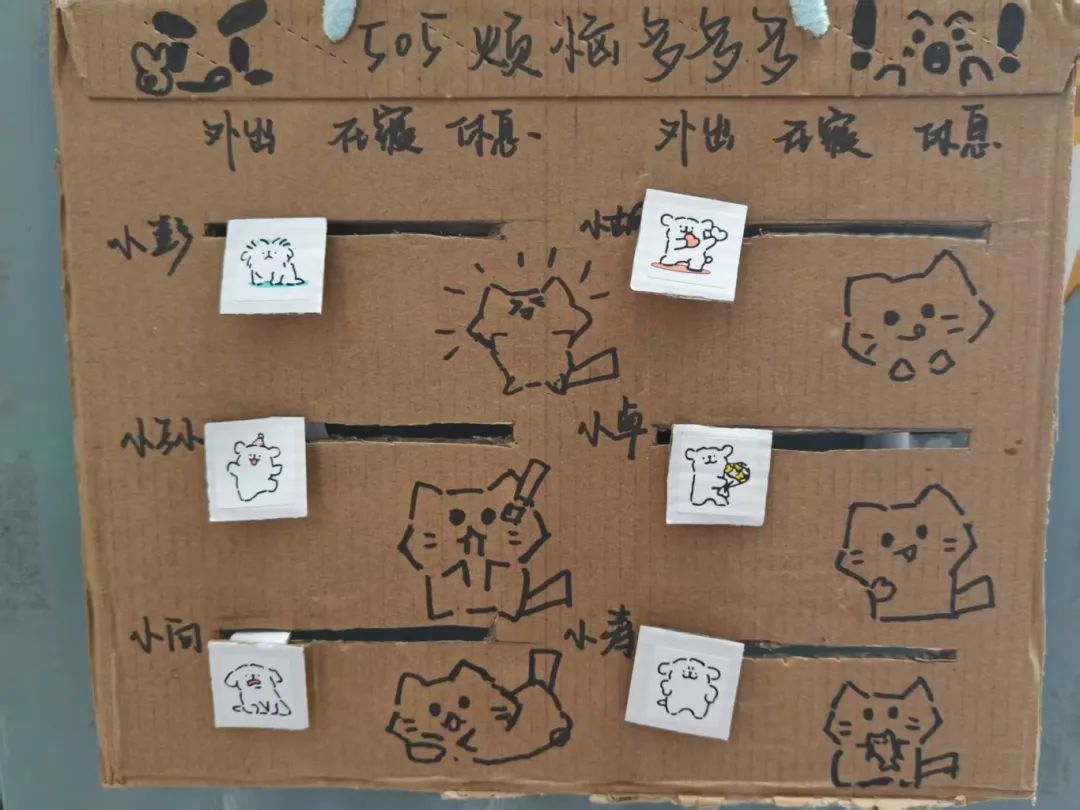 505烦恼多多多
外出 在寝 休息 外出 在寝 休息
小彭 小胡
小孙 小卓
小向 小寿